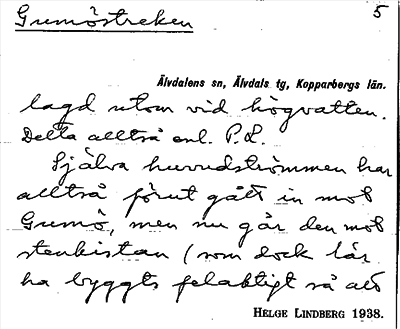 Gumöstreken 5
Älvdalens sn, Älvdals tg, Kopparbergs län.
lagd utom vid högvatten.
Detta alltså enl. P.L.
Själva huvudströmmen har
alltså förut gått in mot
Gumö, men nu går den mot
stenkistan (som dock lär
ha byggts felaktigt så att
HELGE LINDBERG 1938.